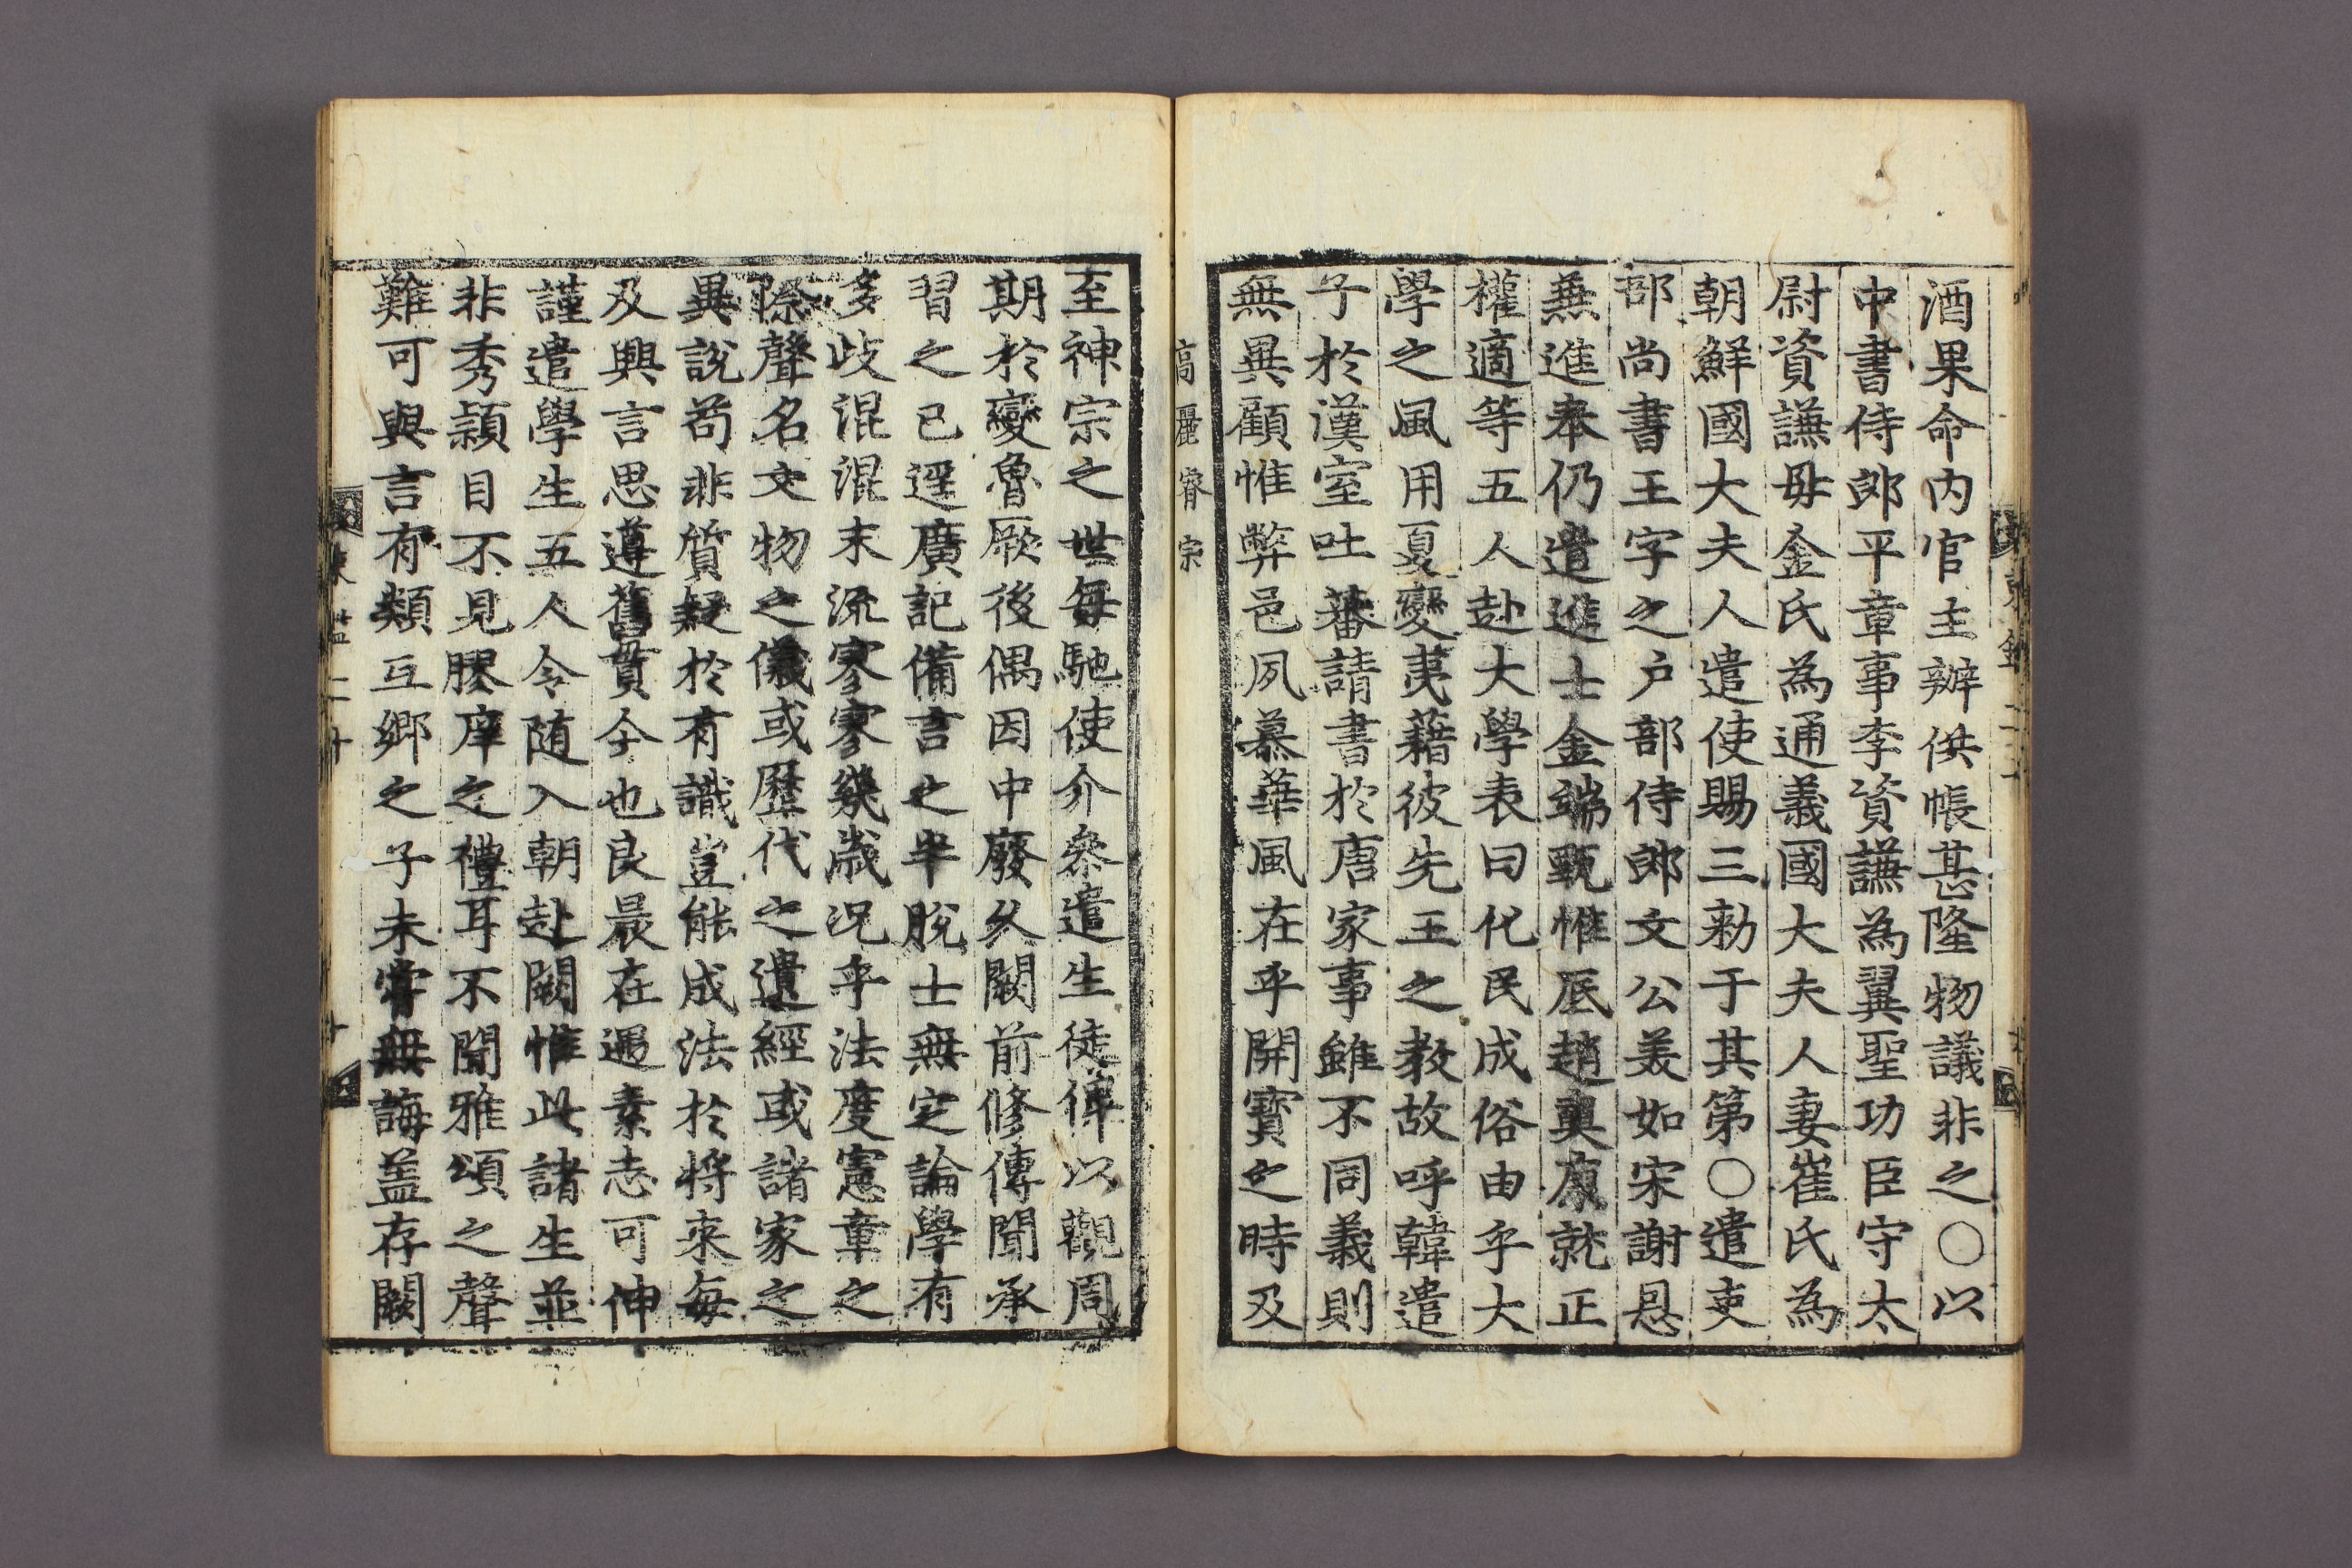 酒果命内官主辦供帳甚隆物議非之○以
中書侍郎平章事李資謙為翼聖功臣守太
尉資謙母金氏為通義國大夫人妻崔氏為
朝鮮國大夫人遣使賜三勅于其第○遣吏
部尚書王字之户部侍郎文公美如宋謝恩
無進奉仍遣進士金端甄惟底趙奭康就正
權適等五人赴大學表曰化民成俗由乎大
學之風用夏變夷藉彼先王之教故呼韓遣
子於漢室吐蕃請書於唐家事雖不同義則
無異顧惟弊邑夙慕華風在乎開寶之時及
高麗睿宗
至神宗之世每馳使介叅遣生徒俾以觀周
期於變魯厥後偶因中廢久闕前修傳聞承
習之已遅廣記備言之半脫士無定論學有
多歧混混末流寥寥幾歲况乎法度憲章之
際聲名文物之儀或歷代之遺經或諸家之
異說苟非質疑於有識豈能成法於將來每
及興言思遵舊貫今也良晨在遇素志可伸
謹遣學生五人令随入朝赴闕惟此諸生並
非秀頴目不見膠庠之禮耳不聞雅頌之聲
難可與言有類互鄉之子未嘗無誨盖存闕